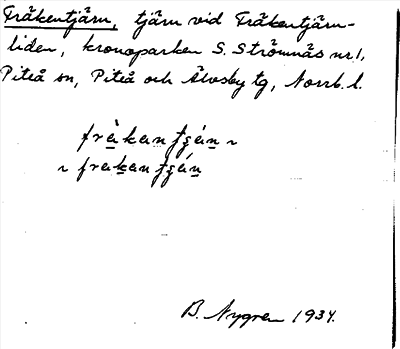 Fräkentjärn, tjärn vid Fräkentjärn-
liden, kronoparken S. Strömnäs nr 1,
Piteå sn, Piteå och Älvsby tg, Norrb. l.
B. Nygren 1934.